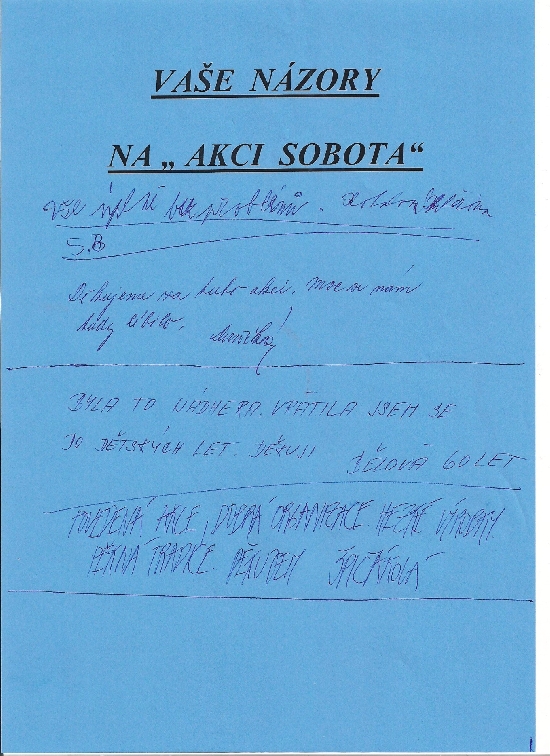 VAŠE NÁZORY
NA „ AKCI SOBOTA“
vše úplně bez problémů.
S.B
Děkujeme za tuto akci. Moc se nám
tady líbilo.
BYLA TO NÁDHERA. VRÁTILA JSEM SE
DO DĚTSKÝCH LET. DĚKUJI BĚLOVÁ 60 LET
POVEDENÁ AKCE, DOBRÁ ORGANIZACE HEZKÉ VÝROBKY.
PĚKNÁ TRADICE. DĚKUJEM ŠPIČÁKOVÁ